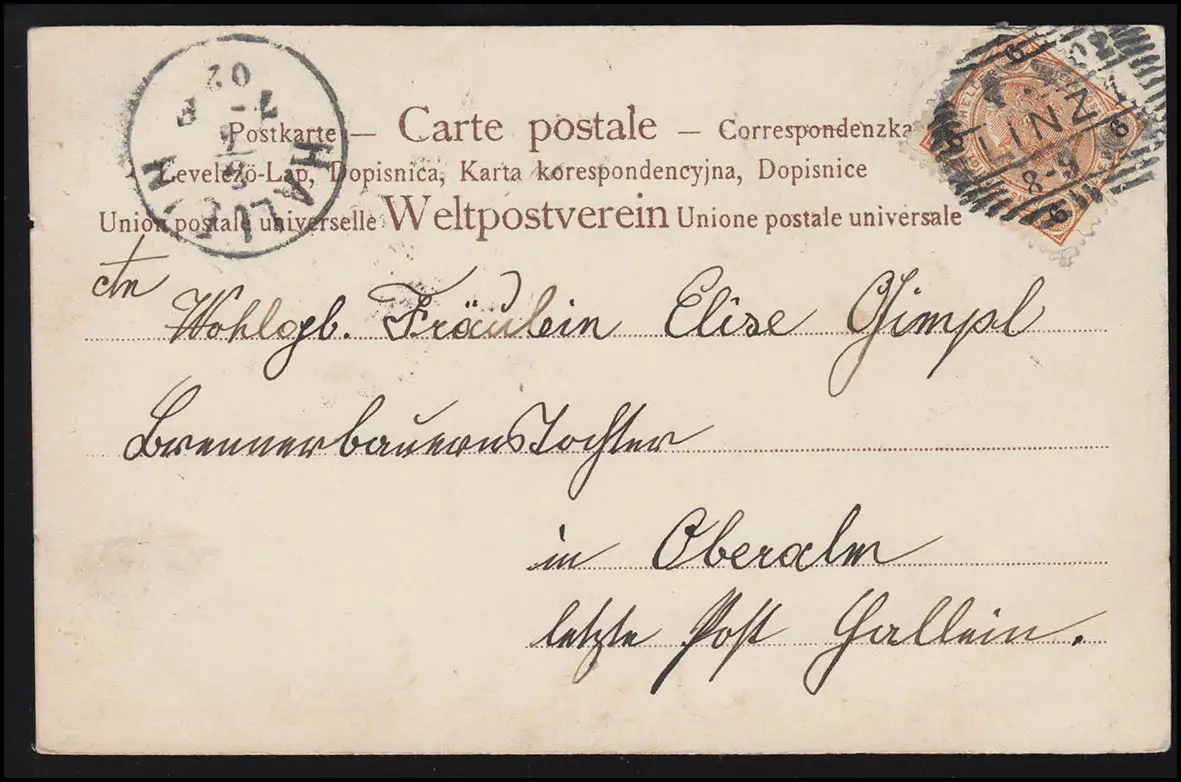 Postkarte — Carte postale — Correspondenzka
Levelező-Lap, Dopisnica, Karta korespondencyjna, Dopisnice
Union postale universelle Weltpostverein Unione postale universale
HALLEIN
02
8-9
6
6
6
An
Wohlgb. Fräulein Elise Gimpl
Brennerbauerns Tochter
in Oberalm
letzte Post Hallein.